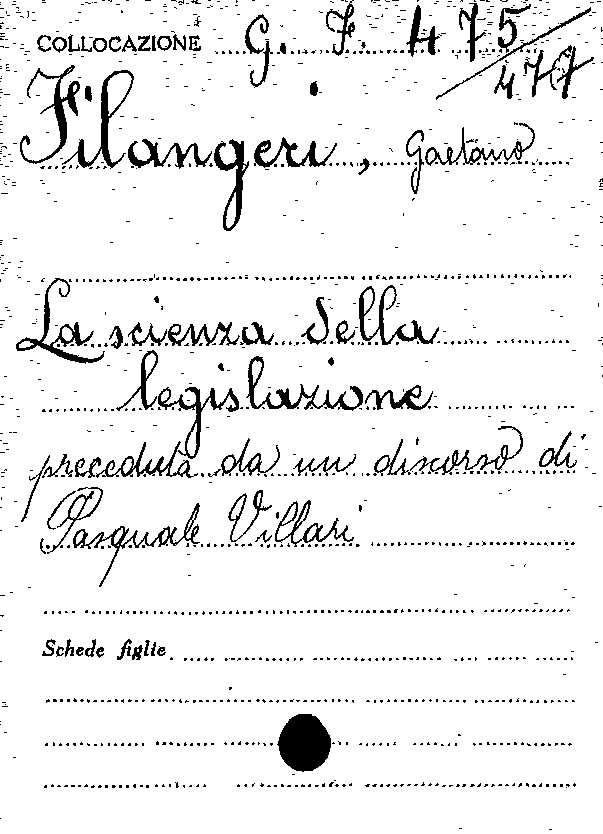 COLLOCAZIONE G. F. 475/477
Filangeri, Gaetano
La scienza della
legislazione
preceduta da un discorso di
Pasquale Villari
Schede figlie